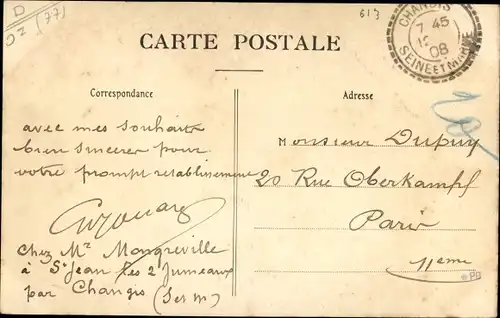 D
(77)
613
CHANGIS
7 45
08
SEINE ET MARNE
CARTE POSTALE
Correspondance
Adresse
avec mes souhaits
bien sinceres pour
votre prompt retablissement
chez Mr Mongreville
à St Jean les 2 Jumeaux
par Changis (Set M)
Monsieur Dupuy
20 Rue Oberkampf
Paris
11eme
PB